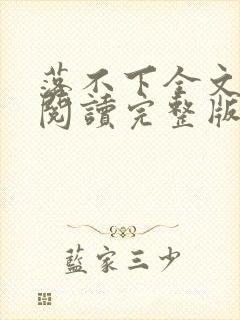 落不下全文
閱讀完整版
藍家三少